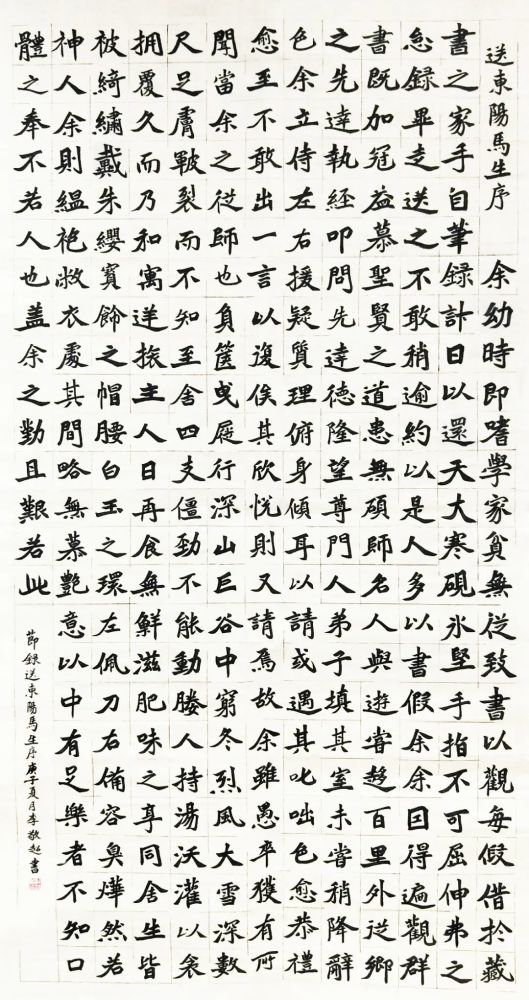 送東陽馬生序 余幼時即嗜學家貧無從致書以觀每假借於藏
書之家手自筆錄計日以還天大寒硯冰堅手指不可屈伸弗之
怠錄畢走送之不敢稍逾約以是人多以書假余余因得遍觀群
書既加冠益慕聖賢之道患無碩師名人與遊嘗趍百里外從鄉
之先達執經叩問先達德隆望尊門人弟子填其室未嘗稍降辭
色余立侍左右援疑質理俯身傾耳以請或遇其叱咄色愈恭禮
愈至不敢出一言以復俟其欣悅則又請焉故余雖愚卒獲有所
聞當余之從師也負篋曳屣行深山巨谷中窮冬烈風大雪深數
尺足膚皸裂而不知至舍四支僵勁不能動媵人持湯沃灌以衾
擁覆久而乃和寓逆旅主人日再食無鮮滋肥味之享同舍生皆
被綺繡戴朱纓寶飾之帽腰白玉之環左佩刀右備容臭燁然若
神人余則縕袍敝衣處其間略無慕艷意以中有足樂者不知口
體之奉不若人也蓋余之勤且艱若此
節錄送東陽馬生序庚子夏月李敬超書